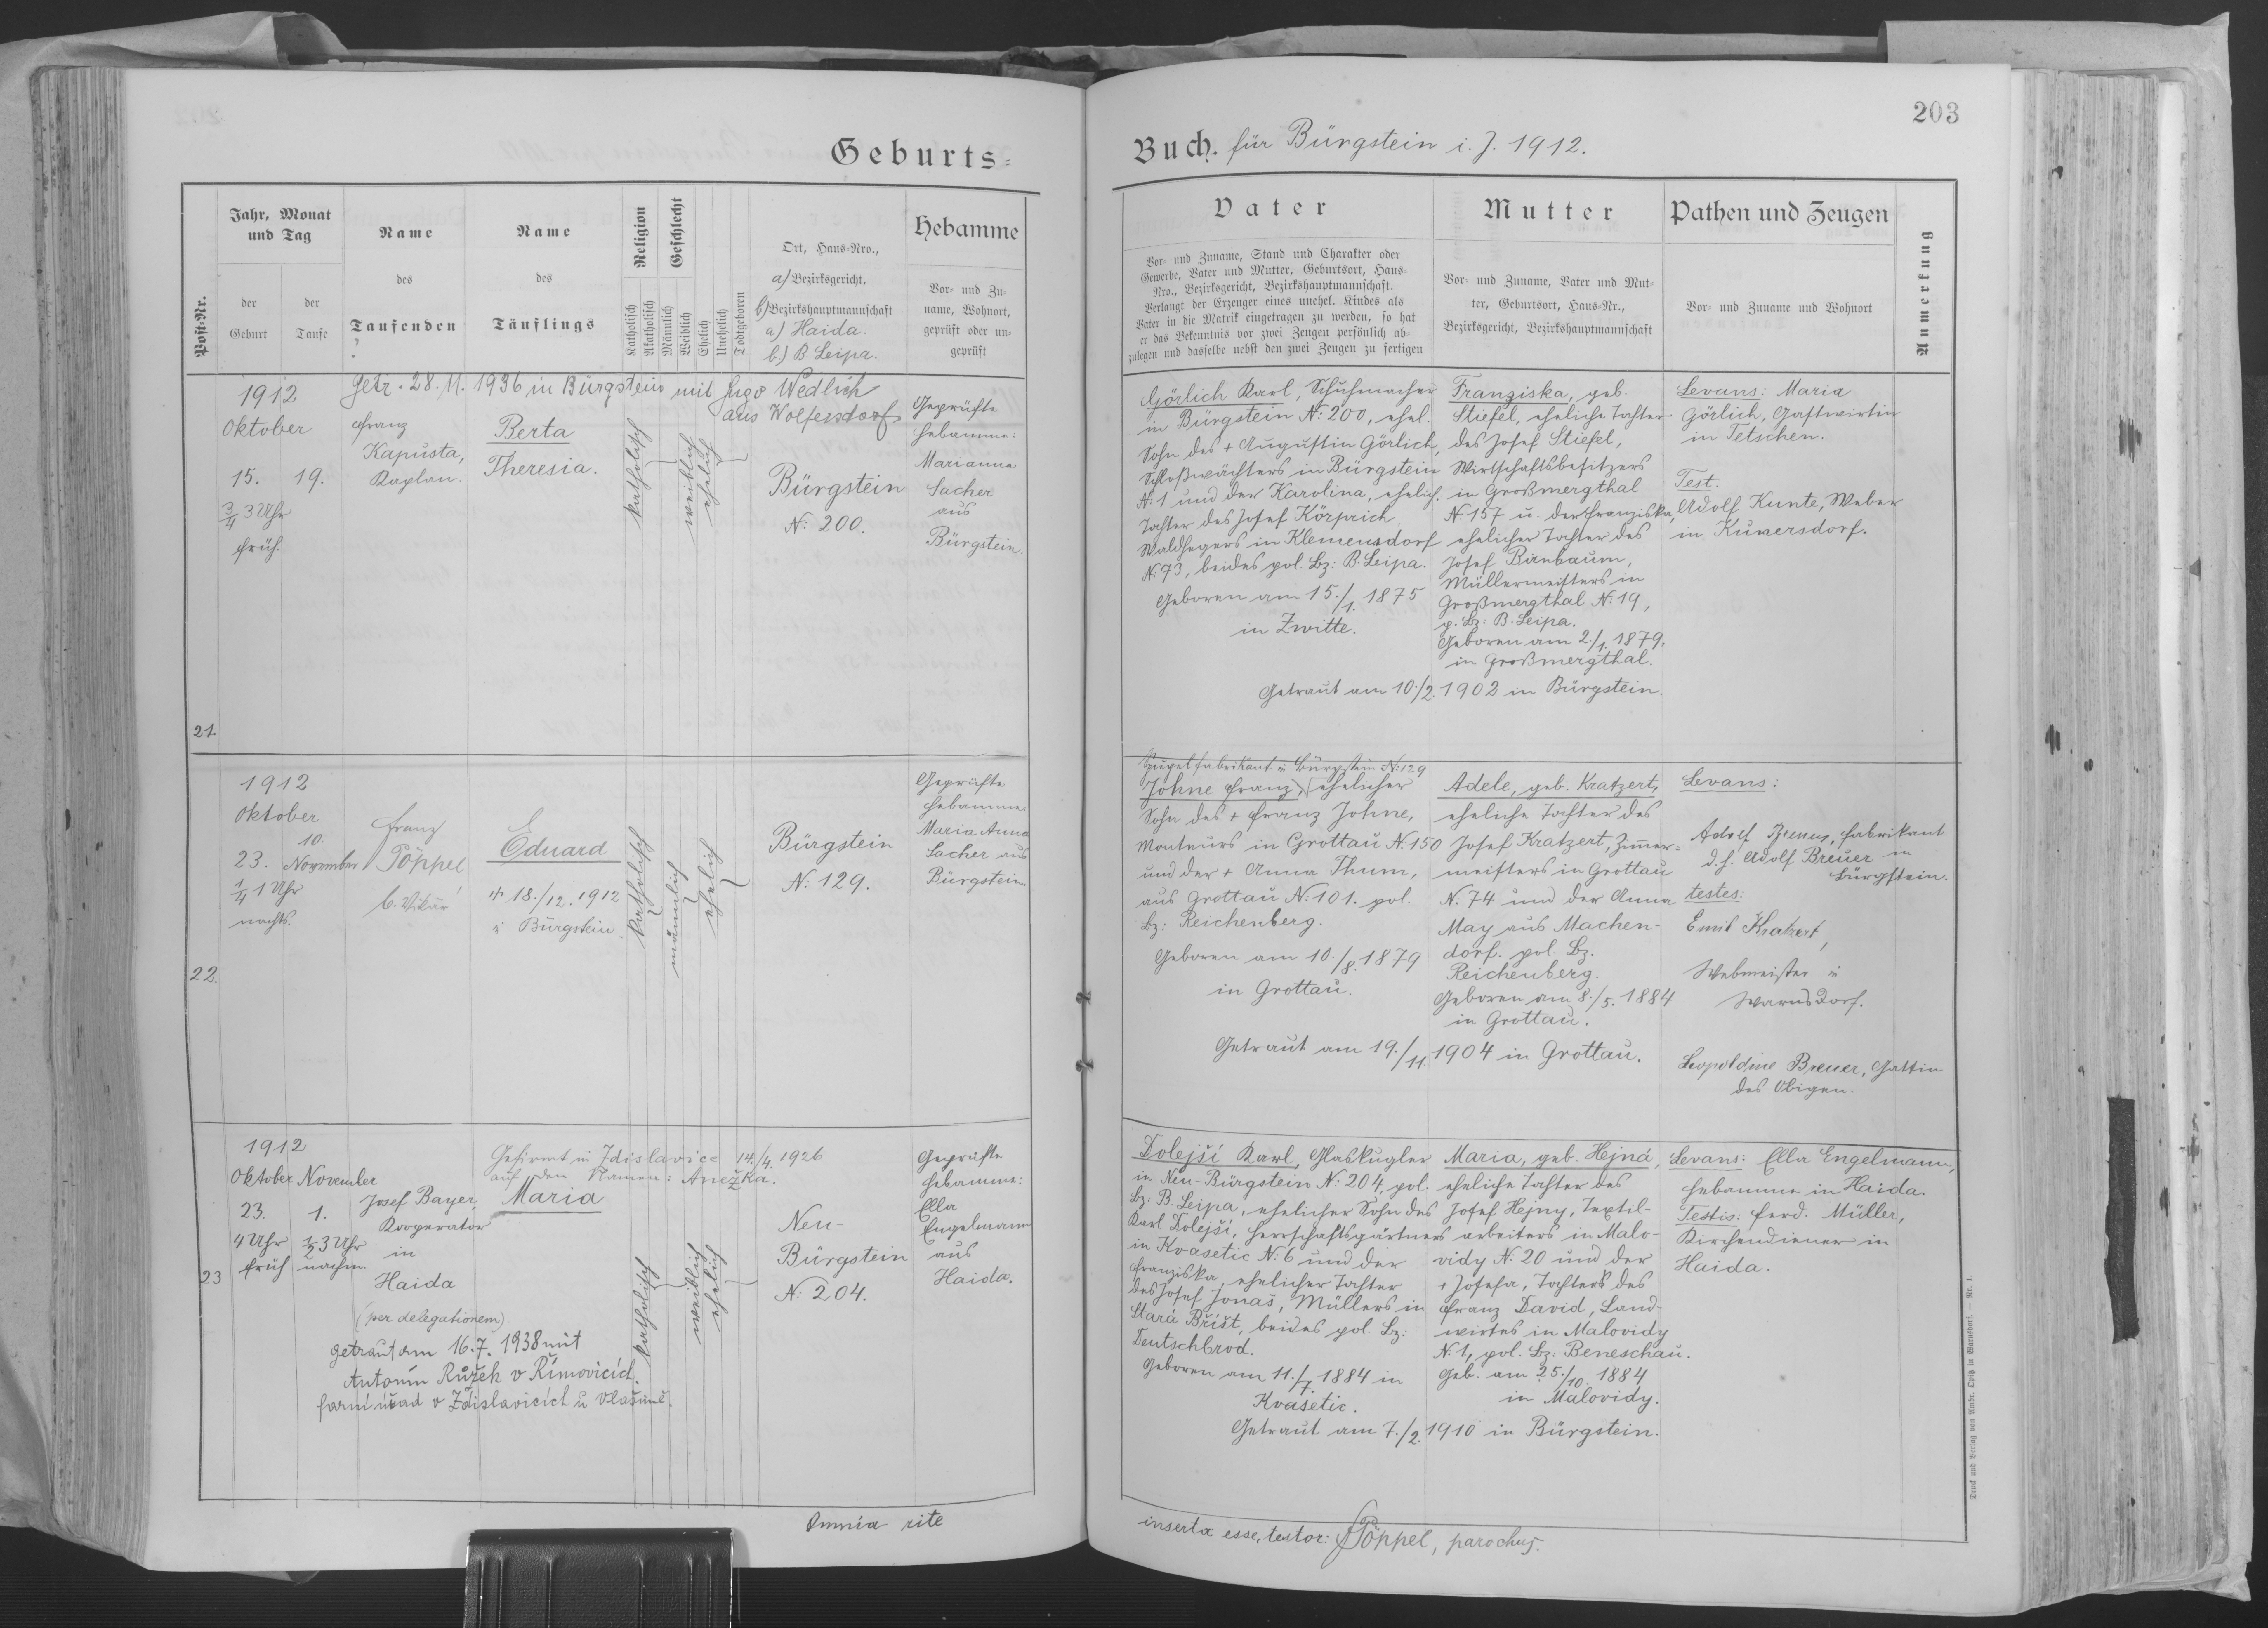 203
Geburts=
Buch. für Bürgstein i. J. 1912.
Post=Nr.
Jahr, Monat
und Tag
der
Geburt
der
Taufe
Name
des
Taufenden
Name
des
Täuflings
Religion
Katholisch
Akatholisch
Geschlecht
Männlich
Weiblich
Ehelich
Unehelich
Todtgeboren
Ort, Haus=Nro.,
a) Bezirksgericht,
b) Bezirkshauptmannschaft
a) Haida.
b.) B. Leipa.
Hebamme
Vor= und Zu=
name, Wohnort,
geprüft oder un=
geprüft
Vater
Vor= und Zuname, Stand und Charakter oder
Gewerbe, Vater und Mutter, Geburtsort, Haus=
Nro., Bezirksgericht, Bezirkshauptmannschaft.
Verlangt der Erzeuger eines unehel. Kindes als
Vater in die Matrik eingetragen zu werden, so hat
er das Bekenntnis vor zwei Zeugen persönlich ab=
zulegen und dasselbe nebst den zwei Zeugen zu fertigen
Mutter
Vor= und Zuname, Vater und Mut=
ter, Geburtsort, Haus=Nr.,
Bezirksgericht, Bezirkshauptmannschaft
Pathen und Zeugen
Vor= und Zuname und Wohnort
Anmerkung
21.
Getr. 28. 11. 1936 in Bürgstein mit Hugo Wedlich
aus Wolfersdorf
1912
Oktober
15. 19.
3/4 3 Uhr
früh.
Franz
Kapusta,
Kaplan.
Berta
Theresia.
katholisch
weiblich
ehelich
Bürgstein
N: 200.
Geprüfte
Hebamme:
Marianna
Sacher
aus
Bürgstein.
Görlich Karl, Schuhmacher
in Bürgstein N: 200, ehel.
Sohn des + Augustin Görlich,
Schloßwächters in Bürgstein
N: 1 und der Karolina, ehelich.
Tochter des Josef Körprich,
Waldhegers in Klemensdorf
N: 73, beides pol. Bz: B. Leipa.
Geboren am 15./1. 1875
in Zwitte.
Franziska, geb.
Stiefel, eheliche Tochter
des Josef Stiefel,
Wirtschaftsbesitzers
in Großmergthal
N: 157 u. der Franziska,
ehelicher Tochter des
Josef Birnbaum,
Müllermeisters in
Großmergthal N: 19,
p. Bz: B. Leipa.
Geboren am 2./1. 1879.
in Großmergthal.
Getraut am 10./2. 1902 in Bürgstein.
Levans: Maria
Görlich, Gastwirtin
in Tetschen.
Test.
Adolf Kunte, Weber
in Kunersdorf.
22.
1912
Oktober
10.
23. November
1/4 1 Uhr
nachts.
Franz
Pöppel
b. Vikär
Eduard
+ 18./12. 1912
i Bürgstein.
katholisch
männlich
ehelich
Bürgstein
N: 129.
Geprüfte
Hebamme
Maria Anna
Sacher aus
Bürgstein.
Spiegelfabrikant in Bürgstein N: 129
Johne Franz, ehelicher
Sohn des + Franz Johne,
Monteurs in Grottau N. 150
und der + Anna Thum,
aus Grottau N: 101. pol.
Bz: Reichenberg.
Geboren am 10./8. 1879
in Grottau.
Adele, geb. Kratzert,
eheliche Tochter des
Josef Kratzert, Zimmer=
meisters in Grottau
N: 74 und der Anna
May aus Machen-
dorf. pol. Bz.
Reichenberg.
Geboren am 8./5. 1884
in Grottau.
Getraut am 19./11. 1904 in Grottau.
Levans:
Adolf Breuer, Fabrikant
d. h. Adolf Breuer in
Bürgstein.
testes:
Emil Kratzert,
Webmeister in
Warnsdorf.
Leopoldine Breuer, Gattin
des Obigen.
23
1912
Oktober November
23. 1.
4 Uhr 1/2 3 Uhr
früh nachm.
Josef Bayer
Kooperator
in
Haida
(per delegationem)
Gefirmt in Zdislavice 14./4. 1926
auf den Namen: Anežka.
Maria
getraut am 16. 7. 1938 mit
Antonín Růžek v Římovicích.
farní úřad v Zdislavicích u Vlašimě.
katholisch
weiblich
ehelich
Neu-
Bürgstein
N: 204.
Geprüfte
Hebamme:
Ella
Engelmann
aus
Haida.
Dolejší Karl, Glaskugler
in Neu-Bürgstein N: 204, pol.
Bz: B. Leipa, ehelicher Sohn des
Karl Dolejší, Herrschaftsgärtners
in Kvasetic N: 6 und der
Franziska, ehelicher Tochter
des Josef Jonaš, Müllers in
Stará Břišt, beides pol. Bz:
Deutschbrod.
Geboren am 11./7. 1884 in
Kvasetic.
Maria, geb. Hejná,
eheliche Tochter des
Josef Hejny, Textil-
arbeiters in Malo-
vidy N: 20 und der
+ Josefa, Tochters des
Franz David, Land-
wirtes in Malovidy
N: 1, pol. Bz: Beneschau.
Geb. am 25./10. 1884
in Malovidy.
Getraut am 7./2. 1910 in Bürgstein.
Levans: Ella Engelmann,
Hebamme in Haida.
Testis: Ferd. Müller,
Kirchendiener in
Haida.
Omnia rite
inserta esse, testor: F Pöppel, parochus.
Druck und Verlag von Ambr. Opitz in Warnsdorf. — Nr. 1.